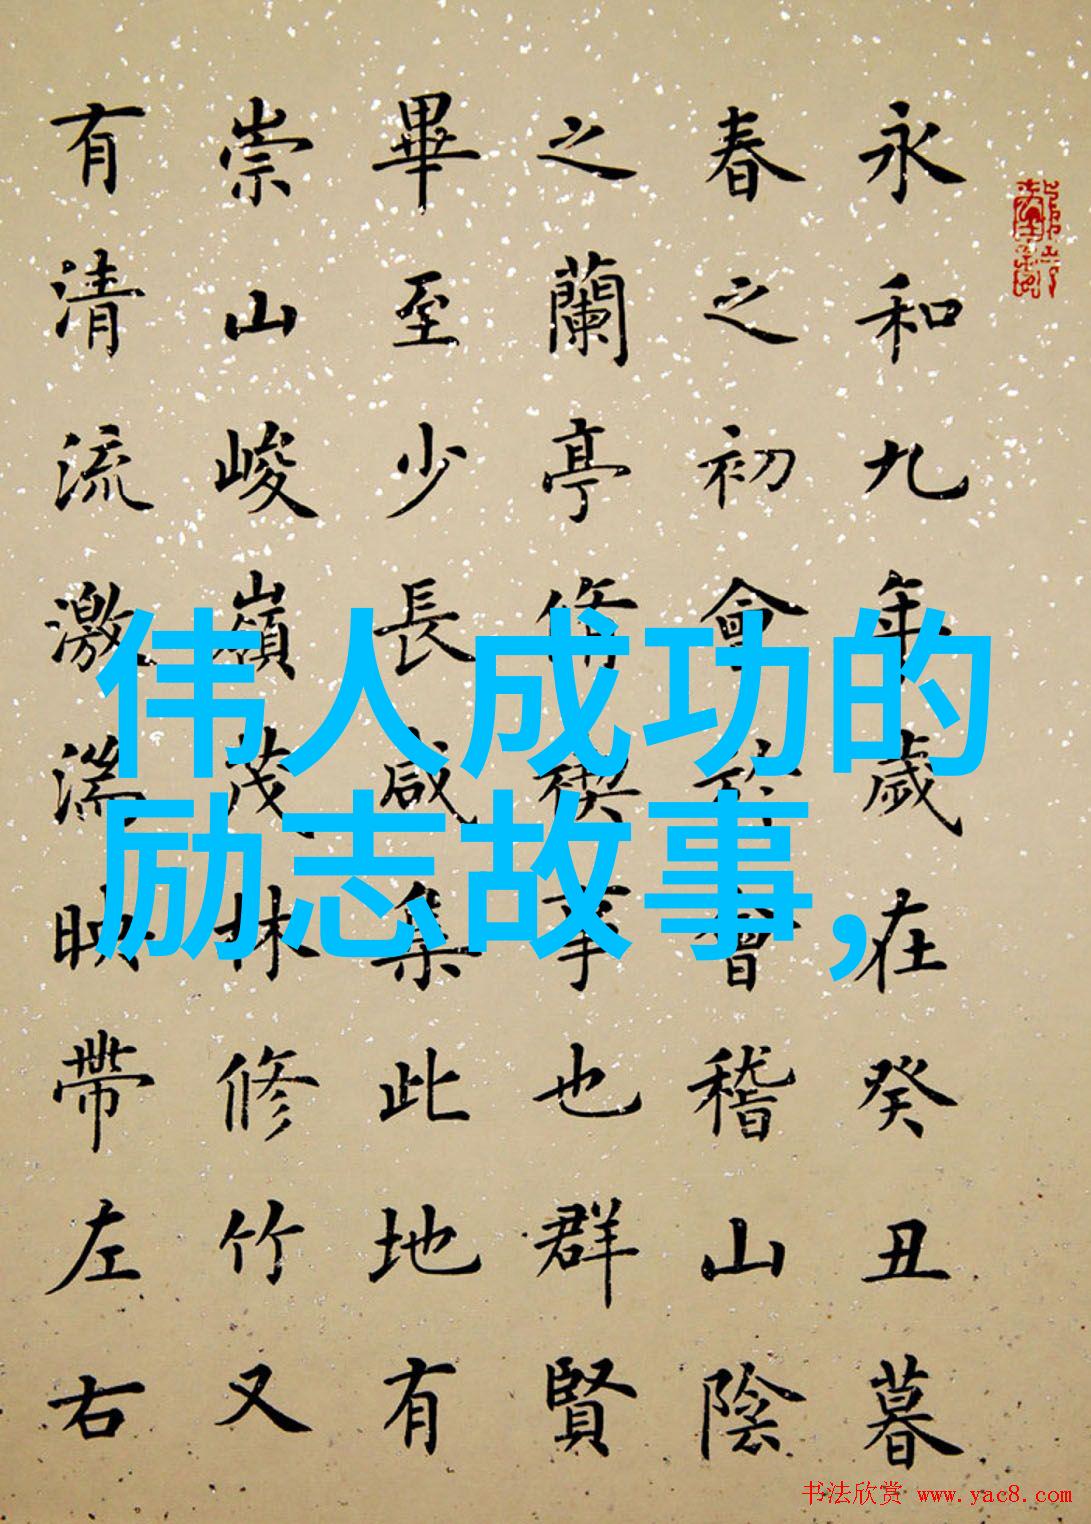 永和九年歲在癸丑暮
春之初會於會稽山陰
之蘭亭脩禊事也群賢
畢至少長咸集此地有
崇山峻嶺茂林修竹又
有清流激湍映帶左右
伟人成功的
励志故事,
书法欣赏 www.yac8.com